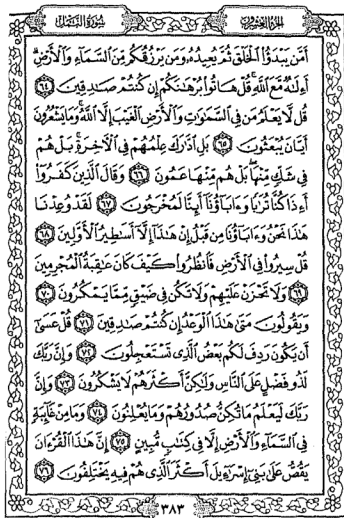 الجزء العشرون
سورة النمل
أَمَّن يَبْدَؤُا۟ ٱلْخَلْقَ ثُمَّ يُعِيدُهُۥ وَمَن يَرْزُقُكُم مِّنَ ٱلسَّمَآءِ وَٱلْأَرْضِ
أَءِلَٰهٌ مَّعَ ٱللَّهِ قُلْ هَاتُوا۟ بُرْهَٰنَكُمْ إِن كُنتُمْ صَٰدِقِينَ ٦٤
قُل لَّا يَعْلَمُ مَن فِى ٱلسَّمَٰوَٰتِ وَٱلْأَرْضِ ٱلْغَيْبَ إِلَّا ٱللَّهُ وَمَا يَشْعُرُونَ
أَيَّانَ يُبْعَثُونَ ٦٥ بَلِ ٱدَّٰرَكَ عِلْمُهُمْ فِى ٱلْءَاخِرَةِ بَلْ هُمْ
فِى شَكٍّ مِّنْهَا بَلْ هُم مِّنْهَا عَمُونَ ٦٦ وَقَالَ ٱلَّذِينَ كَفَرُوٓا۟
أَءِذَا كُنَّا تُرَٰبًا وَءَابَآؤُنَآ أَئِنَّا لَمُخْرَجُونَ ٦٧ لَقَدْ وُعِدْنَا
هَٰذَا نَحْنُ وَءَابَآؤُنَا مِن قَبْلُ إِنْ هَٰذَآ إِلَّآ أَسَٰطِيرُ ٱلْأَوَّلِينَ ٦٨
قُلْ سِيرُوا۟ فِى ٱلْأَرْضِ فَٱنظُرُوا۟ كَيْفَ كَانَ عَٰقِبَةُ ٱلْمُجْرِمِينَ
٦٩ وَلَا تَحْزَنْ عَلَيْهِمْ وَلَا تَكُن فِى ضَيْقٍ مِّمَّا يَمْكُرُونَ ٧٠
وَيَقُولُونَ مَتَىٰ هَٰذَا ٱلْوَعْدُ إِن كُنتُمْ صَٰدِقِينَ ٧١ قُلْ عَسَىٰٓ
أَن يَكُونَ رَدِفَ لَكُم بَعْضُ ٱلَّذِى تَسْتَعْجِلُونَ ٧٢ وَإِنَّ رَبَّكَ
لَذُو فَضْلٍ عَلَى ٱلنَّاسِ وَلَٰكِنَّ أَكْثَرَهُمْ لَا يَشْكُرُونَ ٧٣ وَإِنَّ
رَبَّكَ لَيَعْلَمُ مَا تُكِنُّ صُدُورُهُمْ وَمَا يُعْلِنُونَ ٧٤ وَمَا مِنْ غَآئِبَةٍ
فِى ٱلسَّمَآءِ وَٱلْأَرْضِ إِلَّا فِى كِتَٰبٍ مُّبِينٍ ٧٥ إِنَّ هَٰذَا ٱلْقُرْءَانَ
يَقُصُّ عَلَىٰ بَنِىٓ إِسْرَٰٓءِيلَ أَكْثَرَ ٱلَّذِى هُمْ فِيهِ يَخْتَلِفُونَ ٧٦
٣٨٣